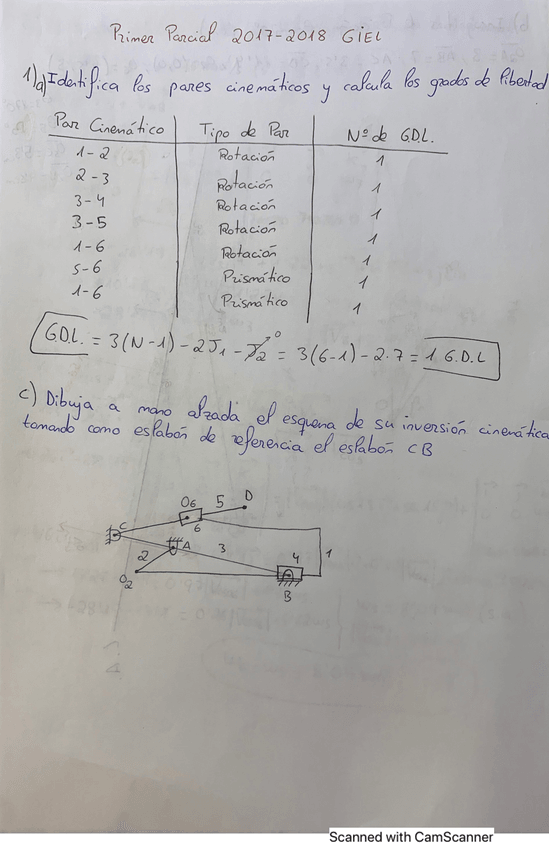 Primer Parcial 2017-2018 GIEL
1)a) Identifica los pares cinemáticos y calcula los grados de libertad
Par Cinemático Tipo de Par Nº de G.D.L.
1-2 Rotación 1
2-3 Rotación 1
3-4 Rotación 1
3-5 Rotación 1
1-6 Rotación 1
5-6 Prismático 1
1-6 Prismático 1
G.D.L. = 3(N-1) - 2J1 - J2 0 = 3(6-1) - 2·7 = 1 G.D.L
c) Dibuja a mano alzada el esquema de su inversión cinemática
tomando como eslabón de referencia el eslabón CB
O6 5 D
C 6
2 A 3 4 1
O2
B
Scanned with CamScanner